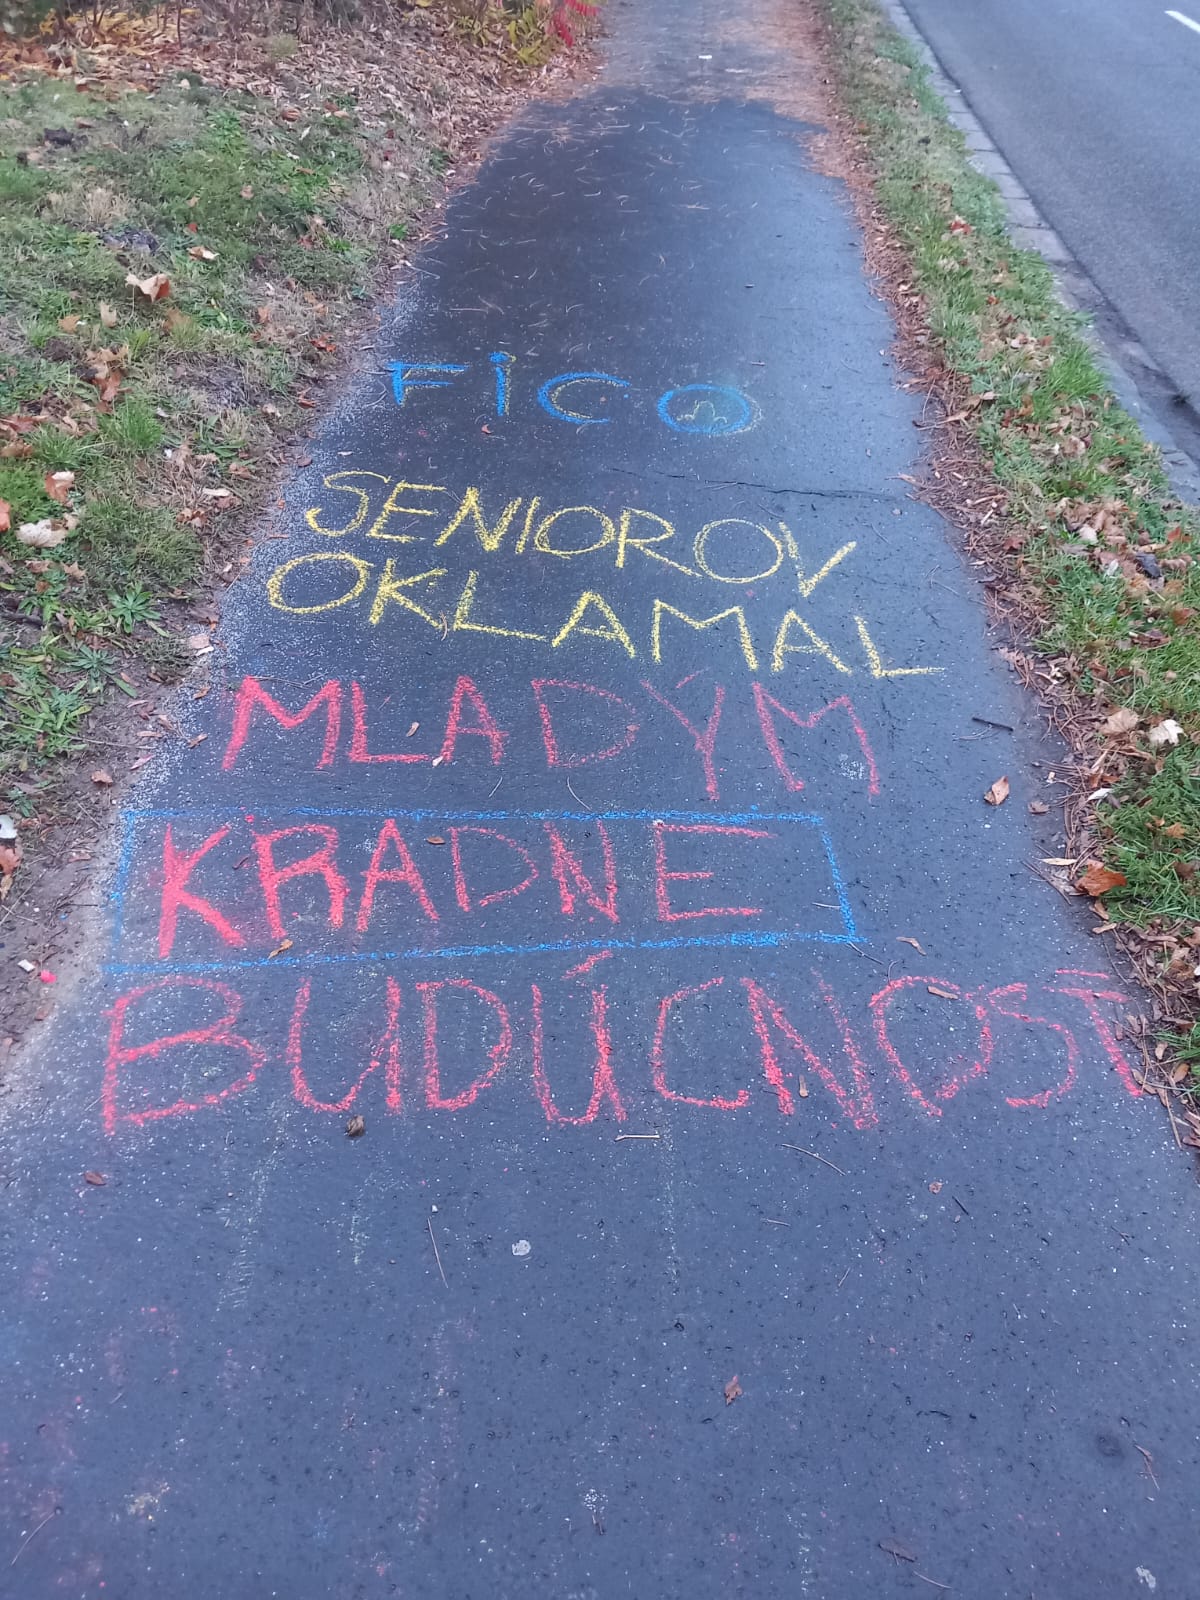 FICO
SENIOROV
OKLAMAL
MLADÝM
KRADNE
BUDÚCNOSŤ